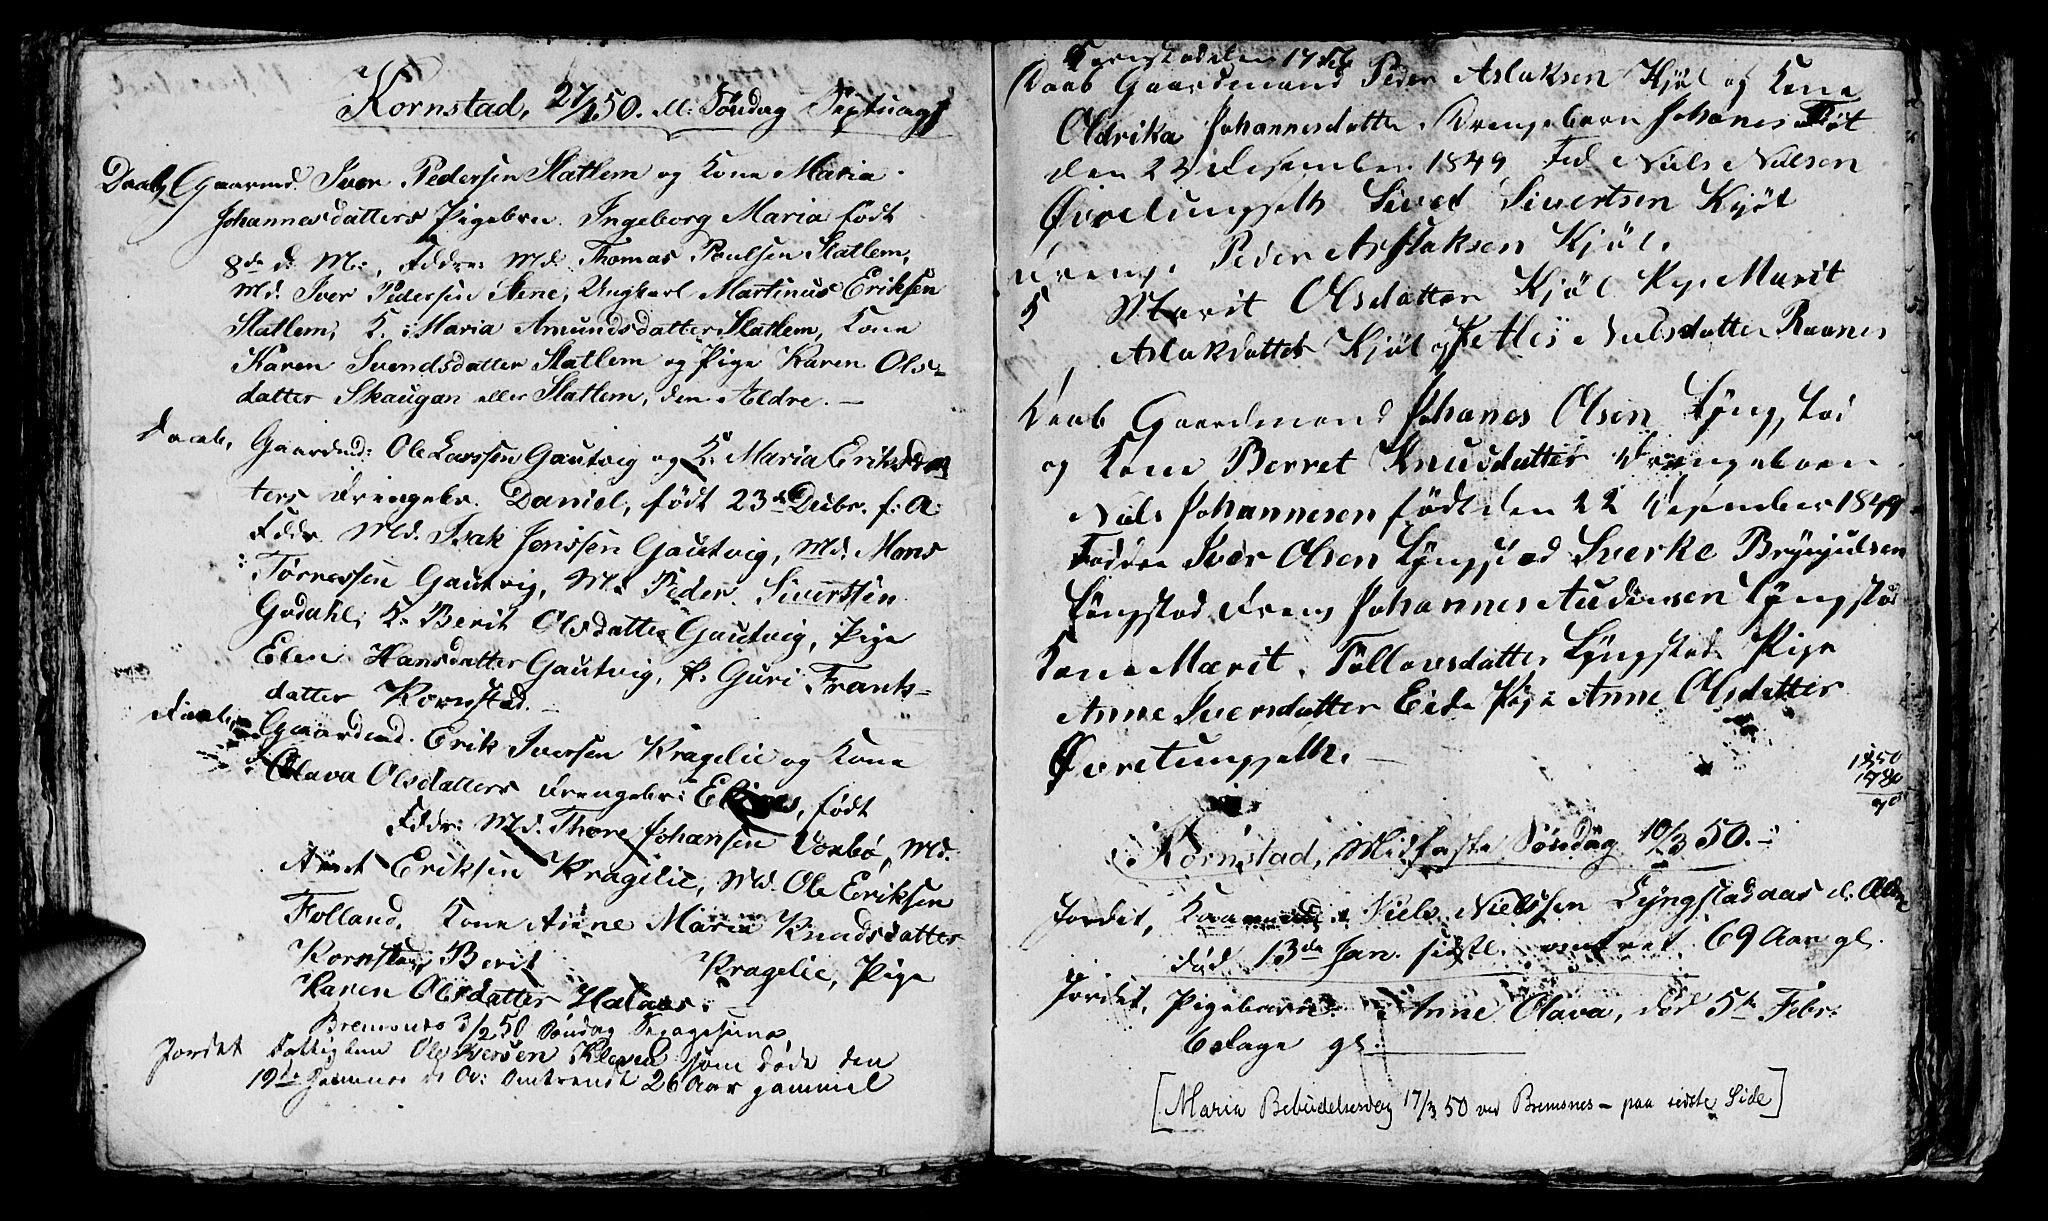 Kornstad, 27/1 50. M: Søndag Septuag:
Daab, Gaarmd. Iver Pedersen Slatlem og Kone Maria
Johannesdatters Pigebrn. Ingeborg Maria født
8de d: M:, Fddre: Md. Thomas Poulsen Slatlem,
Md. Iver Pedersen Stene, Ungkarl Martinus Eriksen
Slatlem, K. Maria Amundsdatter Slatlem, Kone
Karen Svendsdatter Slatlem og Pige Karen Ols-
datter Skaugan eller Slatlem, den Ældre. —
Daab, Gaardmd: Ole Larssen Gautvig og K. Maria Eriksdat
ters Drengebr. Daniel, født 23de Dcbr. f: A:
Fddr. Md. Isak Jonssen Gautvig, Md. Mons
Tørressen Gautvig, Md. Peder Siverssen
Godahl, K. Berit Olsdatter Gautvig, Pige
Elen Hansdatter Gautvig, P. Guri Frants-
datter Kornstad. —
Daab, Gaardmd. Erik Iversen Kragelie og Kone
Olava Olsdatters Drengebr: født
Fddr: Md. Thore Johansen Vorbø, Md.
Arnt Eriksen Kragelie, Md. Ole Eriksen
Folland, Kone Anne Maria Knudsdatter
Kornstad, Berit Kragelie, Pige
Karen Olsdatter Halaas. —
Bremsnes 3/2 50 Søndag
Jordet Ole Iversen Kleven som døde den
19de d: A: Omtrendt 26 Aar gammel
Daab Gaardmand Peder Aslaksen Kjøl og Kone
Oldrika Johannesdatter Drengebarn Johanes født
den 23 Desember 1849 Fad Niels Nielsen
Øvretungseth Sived Sivertsen Kjøl
Dreng. Peder Aslaksen Kjøl.
K Marit Olsdatter Kjøl Pige Marit
Aslakdatter Kjøl og Nielsdatter Ranes
Daab Gaardmand Johanes Olsen Lyngstad
og Kone Berret Knusdatter Drengebarn
Niels Johannesen født den 22 Desember 1849
Fadere Iver Olsen Lyngstad Sverke Brynjulsen
Lyngstad Dreng Johannes Audensen Lyngstad
Kone Marit Tollevsdatter Lyngstad Pige
Anne Iversdatter Eide Pige Anne Olsdatter
Øvretungseth. —
1850
1780
70
Kornstad, Midfaste Søndag 10/3 50. —
Jordet, Niels Nielssen Lyngstadaas d. Ældre
død 13de Jan. sidstl. omtret. 69 Aar gl.
Jordet, Pigebarnet Anne Olava, død 5te Febr:
6 dage gl.
[Maria Bebudelsesdag 17/3 50 ved Bremsnes — paa sidste Side]